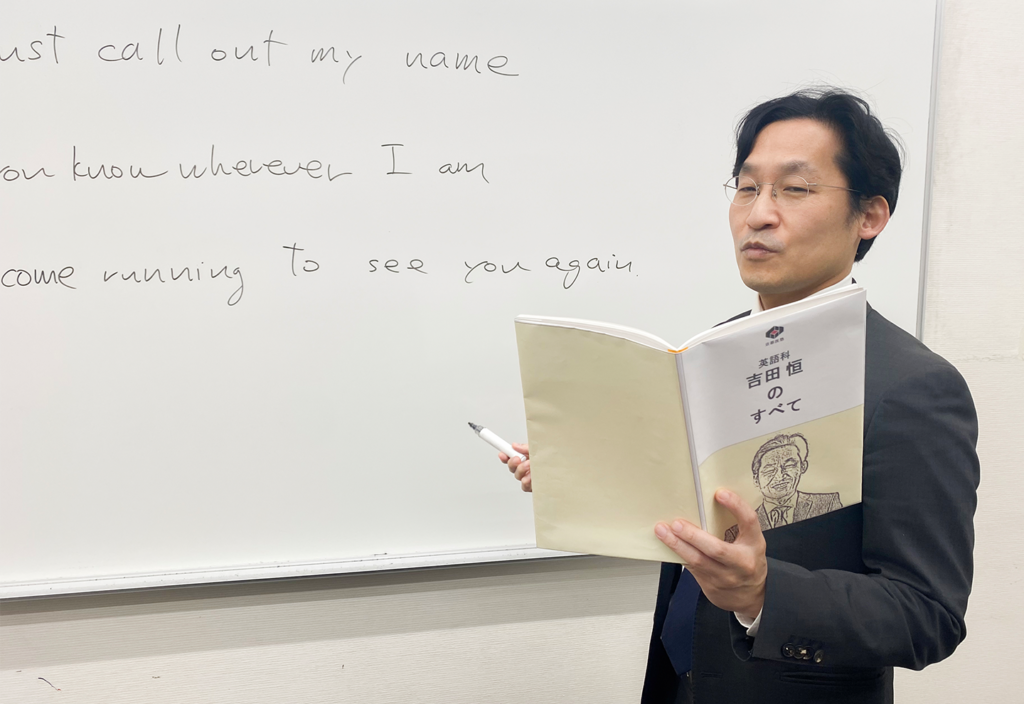 ust call out my name
ou know wherever I am
come running to see you again.
英語科
吉田 恒
の
すべて